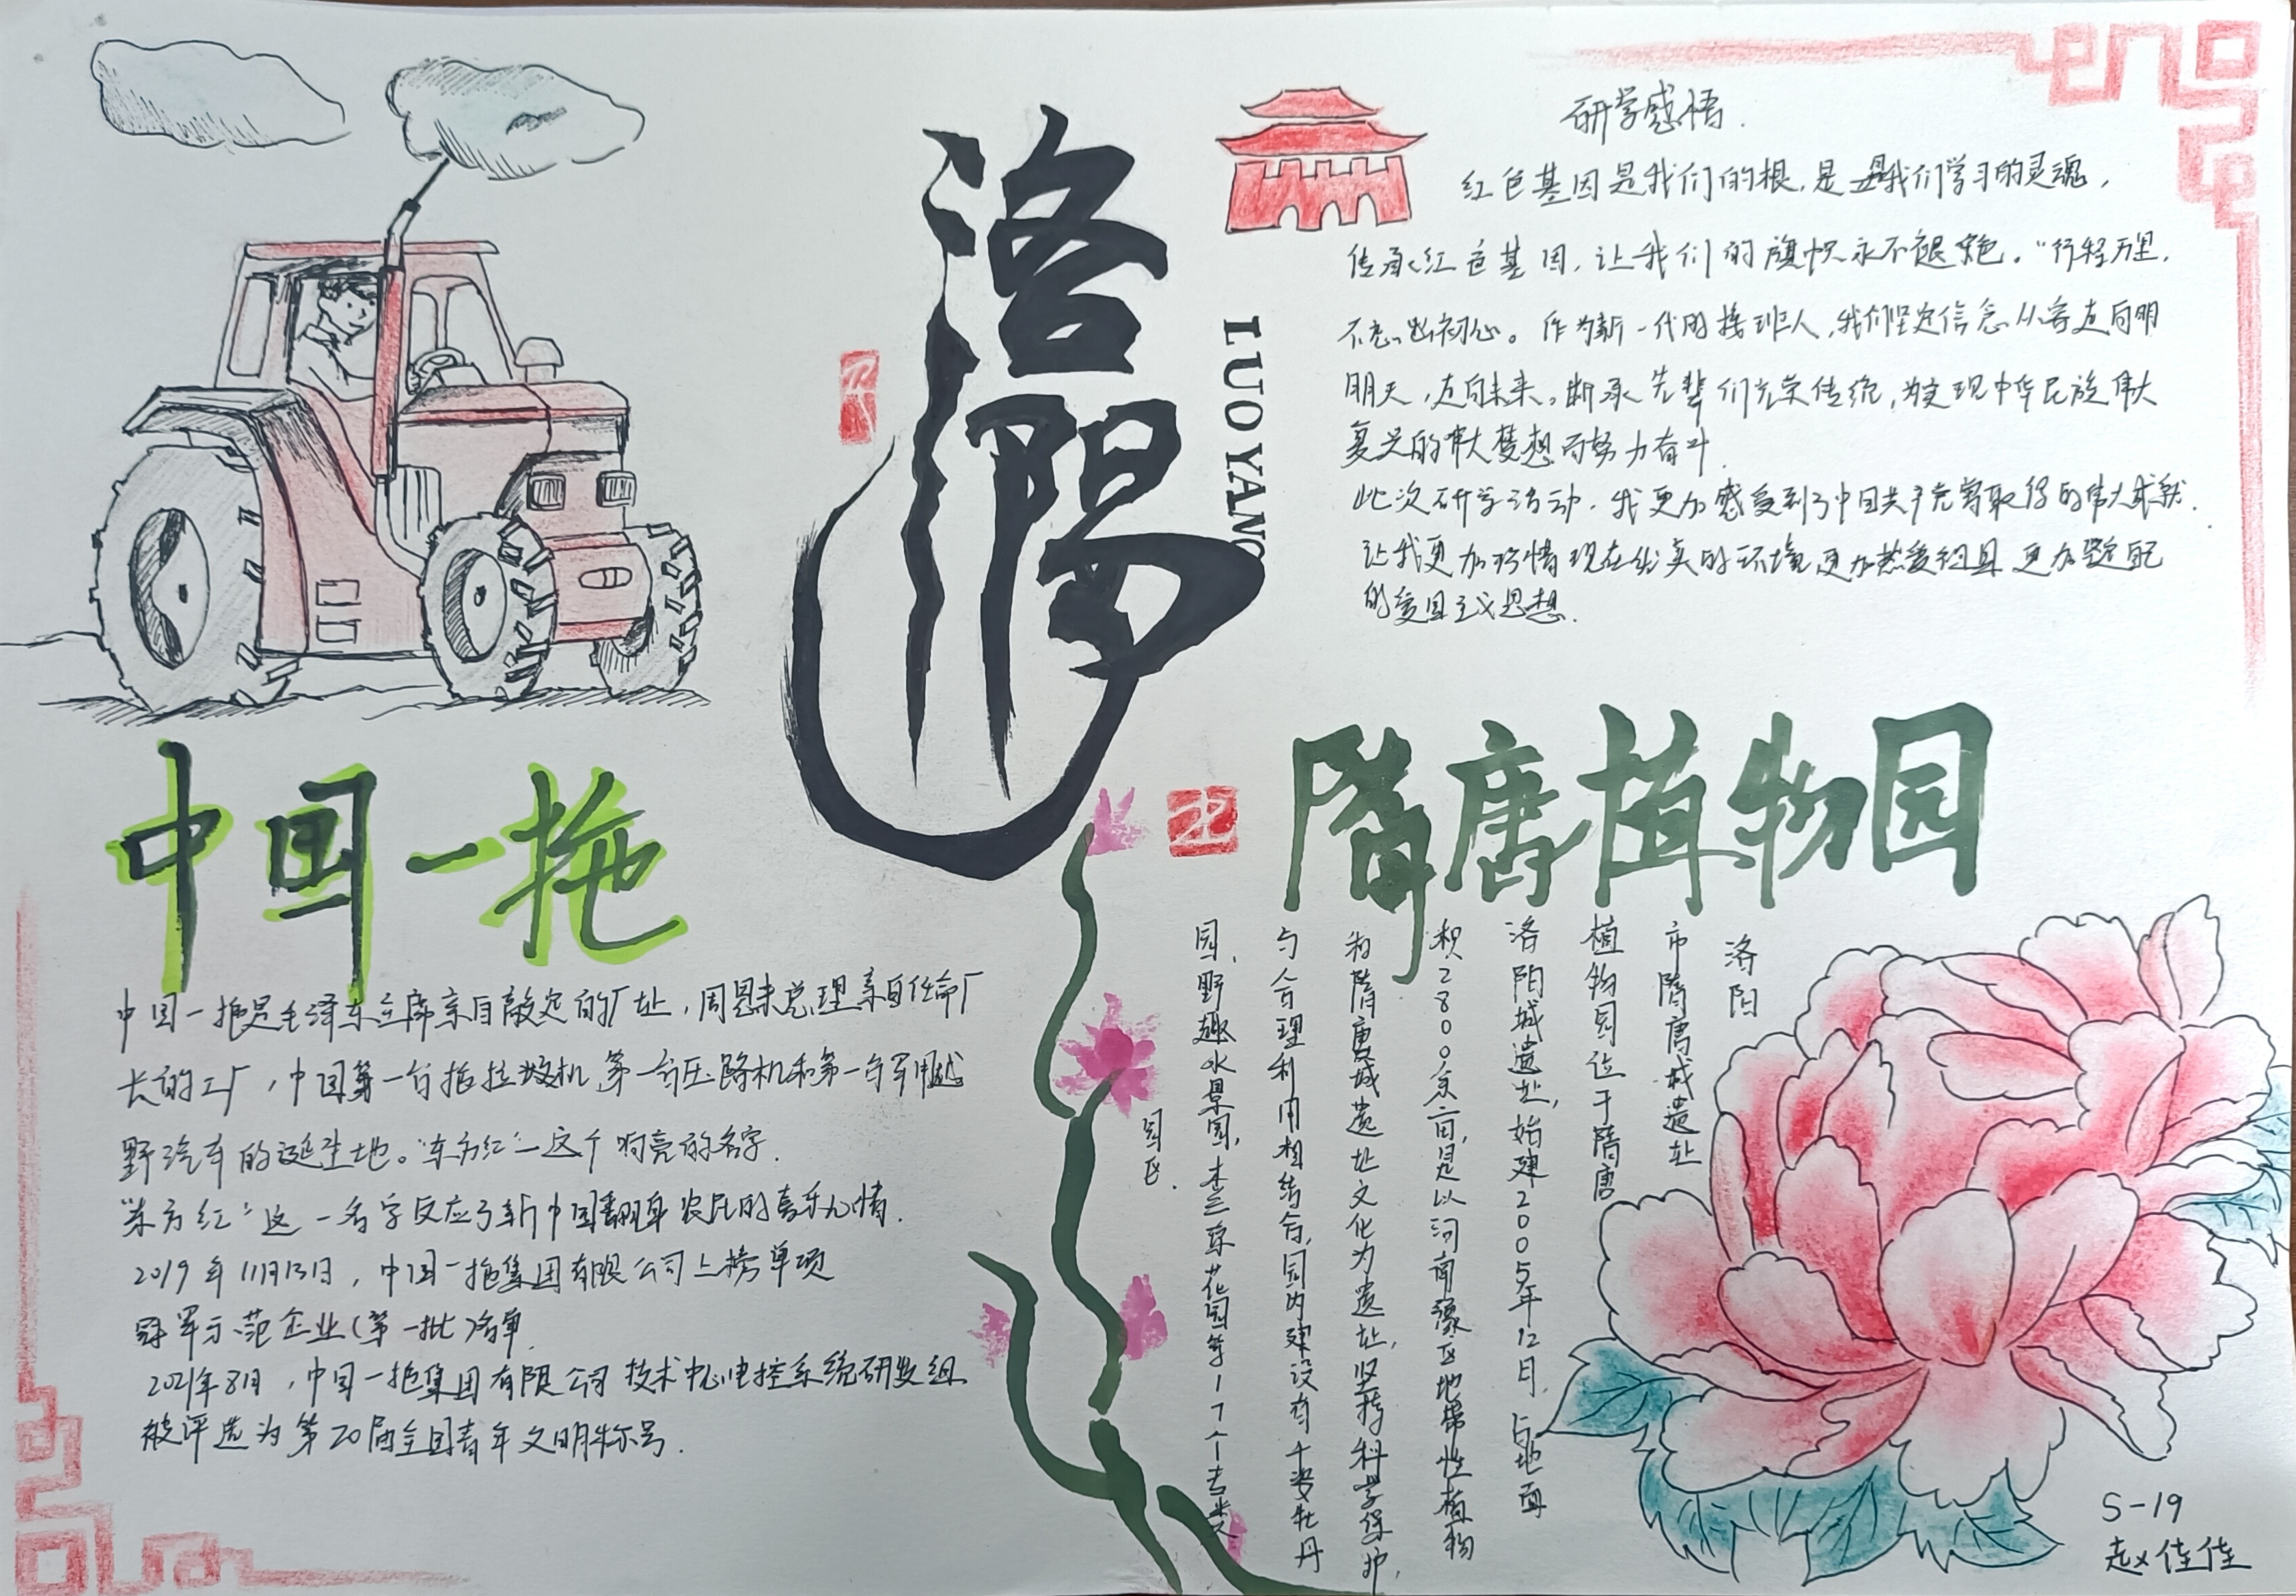 洛阳
LUOYANG
中国一拖
中国一拖是毛泽东主席亲自敲定的厂址，周恩来总理亲自任命厂
长的工厂，中国第一台拖拉机、第一台压路机和第一台军用越
野汽车的诞生地。“东方红”—这个响亮的名字.
“东方红”这一名字反应了新中国翻身农民的喜乐心情.
2019年11月13日，中国一拖集团有限公司上榜单项
冠军示范企业(第一批)名单.
2021年8月，中国一拖集团有限公司技术中心电控系统研发组
被评选为第20届全国青年文明称号.
研学感悟.
红色基因是我们的根,是我们学习的灵魂，
传承红色基因,让我们的旗帜永不褪色。“行程万里,
不忘初心。作为新一代的接班人,我们坚定信念从容走向明
明天,走向未来。继承先辈们光荣传统,为实现中华民族伟大
复兴的伟大梦想而努力奋斗.
此次研学活动,我更加感受到了中国共产党取得的伟大成就.
让我更加珍惜现在优美的环境更加热爱祖国更加坚定
的爱国主义思想.
隋唐植物园
洛阳
市隋唐城遗址
植物园位于隋唐
洛阳城遗址,始建2005年12月,占地面
积2800余亩,是以河南豫西地带性植物
和隋唐城遗址文化为遗址,坚持科学保护,
与合理利用相结合,园内建设有千姿牡丹
园、野趣水景园,木兰琼花园等17个专类
园区.
S-19
赵佳佳